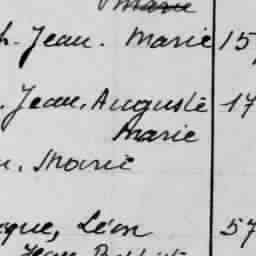 Marie
h. Jean. Marie 15,
. Jean, Auguste 17
Marie
n. Marie
cque, Léon 57
Jean Baptiste